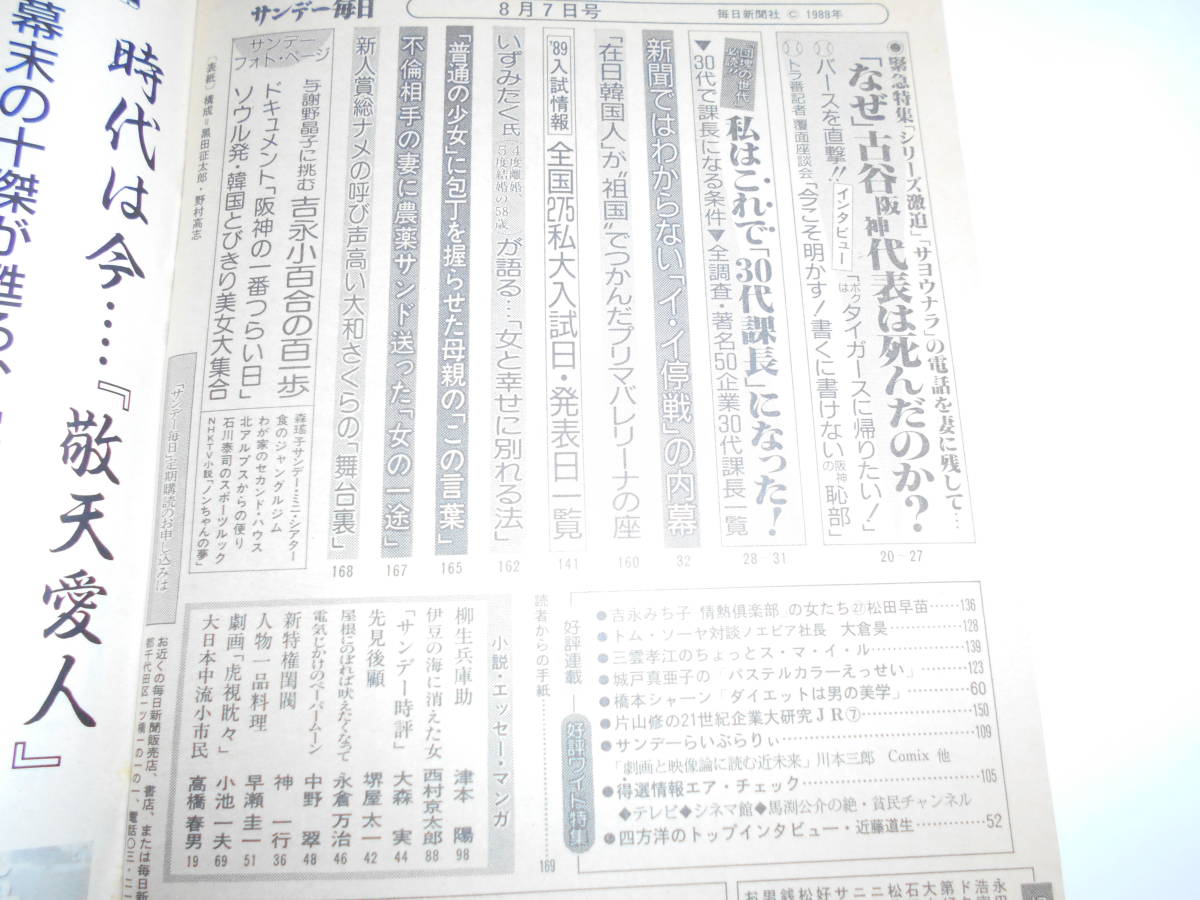 サンデー毎日
8月7日号
毎日新聞社 © 1988年
●緊急特集「シリーズ激迫」「サヨウナラ」の電話を妻に残して…
「なぜ」古谷阪神代表は死んだのか?
バースを直撃!! インタビュー「ボクはタイガースに帰りたい!」
トラ番記者 覆面座談会「今こそ明かす!書くに書けない阪神の恥部」
20-27
「団塊の世代」必読!?
私はこれで「30代課長」になった!
▼30代で課長になる条件▼全調査・著名50企業30代課長一覧
28-31
新聞ではわからない「イ・イ停戦」の内幕
32
「在日韓国人」が"祖国"でつかんだプリマバレリーナの座
160
'89入試情報 全国275私大入試日・発表日一覧
141
いずみたく氏(4度離婚、5度結婚の58歳)が語る…「女と幸せに別れる法」
162
「普通の少女」に包丁を握らせた母親の「この言葉」
165
不倫相手の妻に農薬サンド送った「女の一途」
167
新人賞総ナメの呼び声高い大和さくらの「舞台裏」
168
サンデーフォト・ページ
与謝野晶子に挑む 吉永小百合の百一歩
ドキュメント「阪神の一番つらい日」
ソウル発・韓国とびきり美女大集合
森瑤子サンデー・ミニ・シアター
食のジャングルジム
わが家のセカンド・ハウス
北アルプスからの便り
石川泰司のスポーツルック
NHKTV小説「ノンちゃんの夢」
〔表紙〕構成=黒田征太郎・野村高志
好評連載
●吉永みち子 情熱倶楽部の女たち㉗松田早苗……136
●トム・ソーヤ対談ノエビア社長 大倉昊……128
●三雲孝江のちょっとス・マ・イ・ル……139
●城戸真亜子の「パステルカラーえっせい」……123
●橋本シャーン「ダイエットは男の美学」……60
●片山修の21世紀企業大研究JR⑦……150
好評ワイド特集
●サンデーらいぶらりぃ……109
「劇画と映像論に読む近未来」川本三郎 Comix 他
●得選情報エア・チェック……105
◆テレビ◆シネマ館◆馬渕公介の絶・貧民チャンネル
●四方洋のトップインタビュー・近藤道生……52
読者からの手紙
169
小説・エッセー・マンガ
柳生兵庫助 津本 陽 98
伊豆の海に消えた女 西村京太郎 88
「サンデー時評」 大森 実 44
先見後顧 堺屋太一 42
屋根にのぼれば吠えたくなって 永倉万治 46
電気じかけのペーパームーン 中野 翠 48
新特権閨閥 神 一行 36
人物一品料理 早瀬圭一 51
劇画「虎視眈々」 小池一夫 69
大日本中流小市民 高橋春男 19
「サンデー毎日」定期購読のお申し込みは
お近くの毎日新聞販売店、書店、または毎日新
都千代田区一ツ橋一の一の一、電話〇三・二
時代は今‥‥『敬天愛人』
幕末の十傑が甦る、